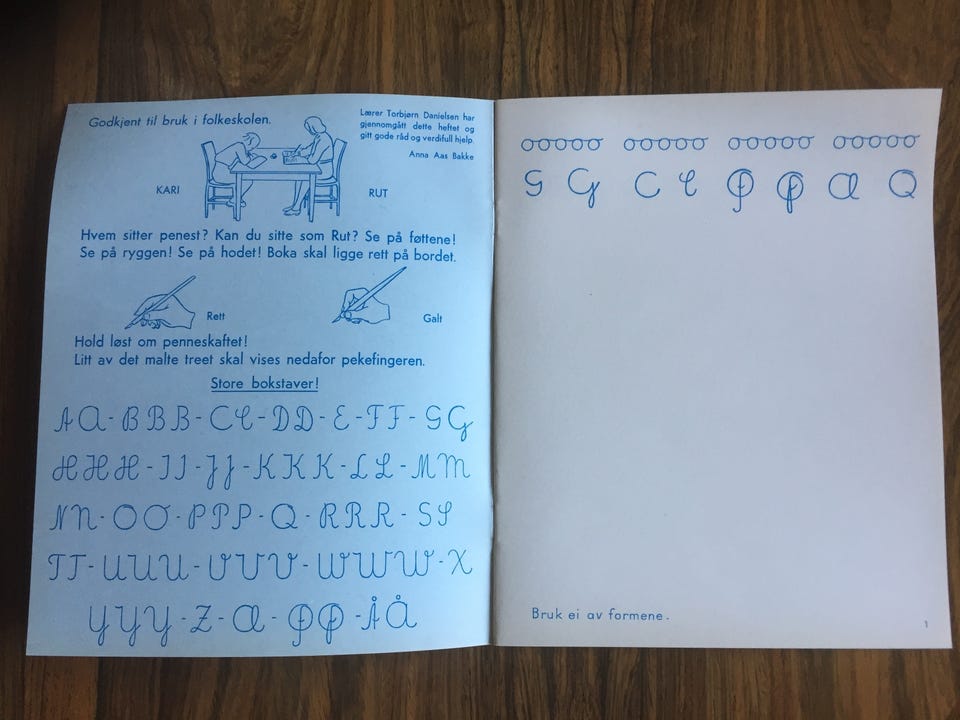 Godkjent til bruk i folkeskolen.
Lærer Torbjørn Danielsen har
gjennomgått dette heftet og
gitt gode råd og verdifull hjelp.
Anna Aas Bakke
KARI
RUT
Hvem sitter penest? Kan du sitte som Rut? Se på føttene!
Se på ryggen! Se på hodet! Boka skal ligge rett på bordet.
Rett
Galt
Hold løst om penneskaftet!
Litt av det malte treet skal vises nedafor pekefingeren.
Store bokstaver!
A A - B B B - C C - D D - E - F F - G G
H H H - I I - J J - K K K - L L - M M
N N - O O - P P P - Q - R R R - S S
T T - U U U - V V V - W W W - X
Y Y Y - Z - Æ - Ø Ø - Å Å
o o o o o o o o o o o o o o o o o o o o
G G C C Ø Ø Æ Q
Bruk ei av formene.
1